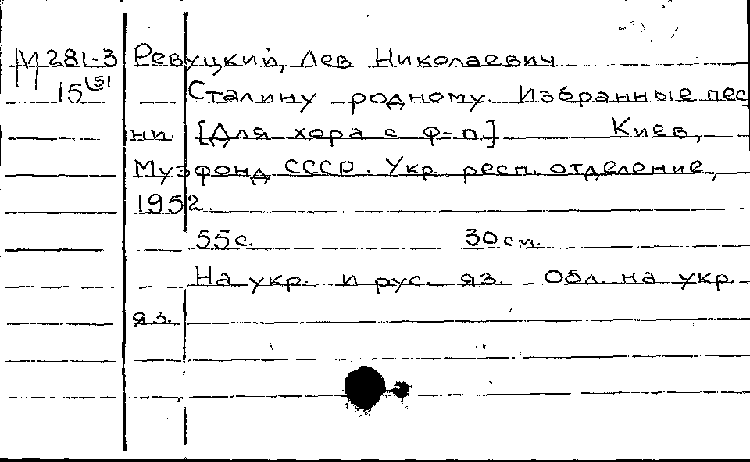 М 281-3 Ревуцкий, Лев Николаевич
15 Сталину родному. Избранные пес
ни [Для хора с ф-п.] Киев,
Музфонд СССР. Укр. респ. отделение,
1952.
55 с. 30 см.
На укр. и рус. яз. Обл. на укр.
яз.